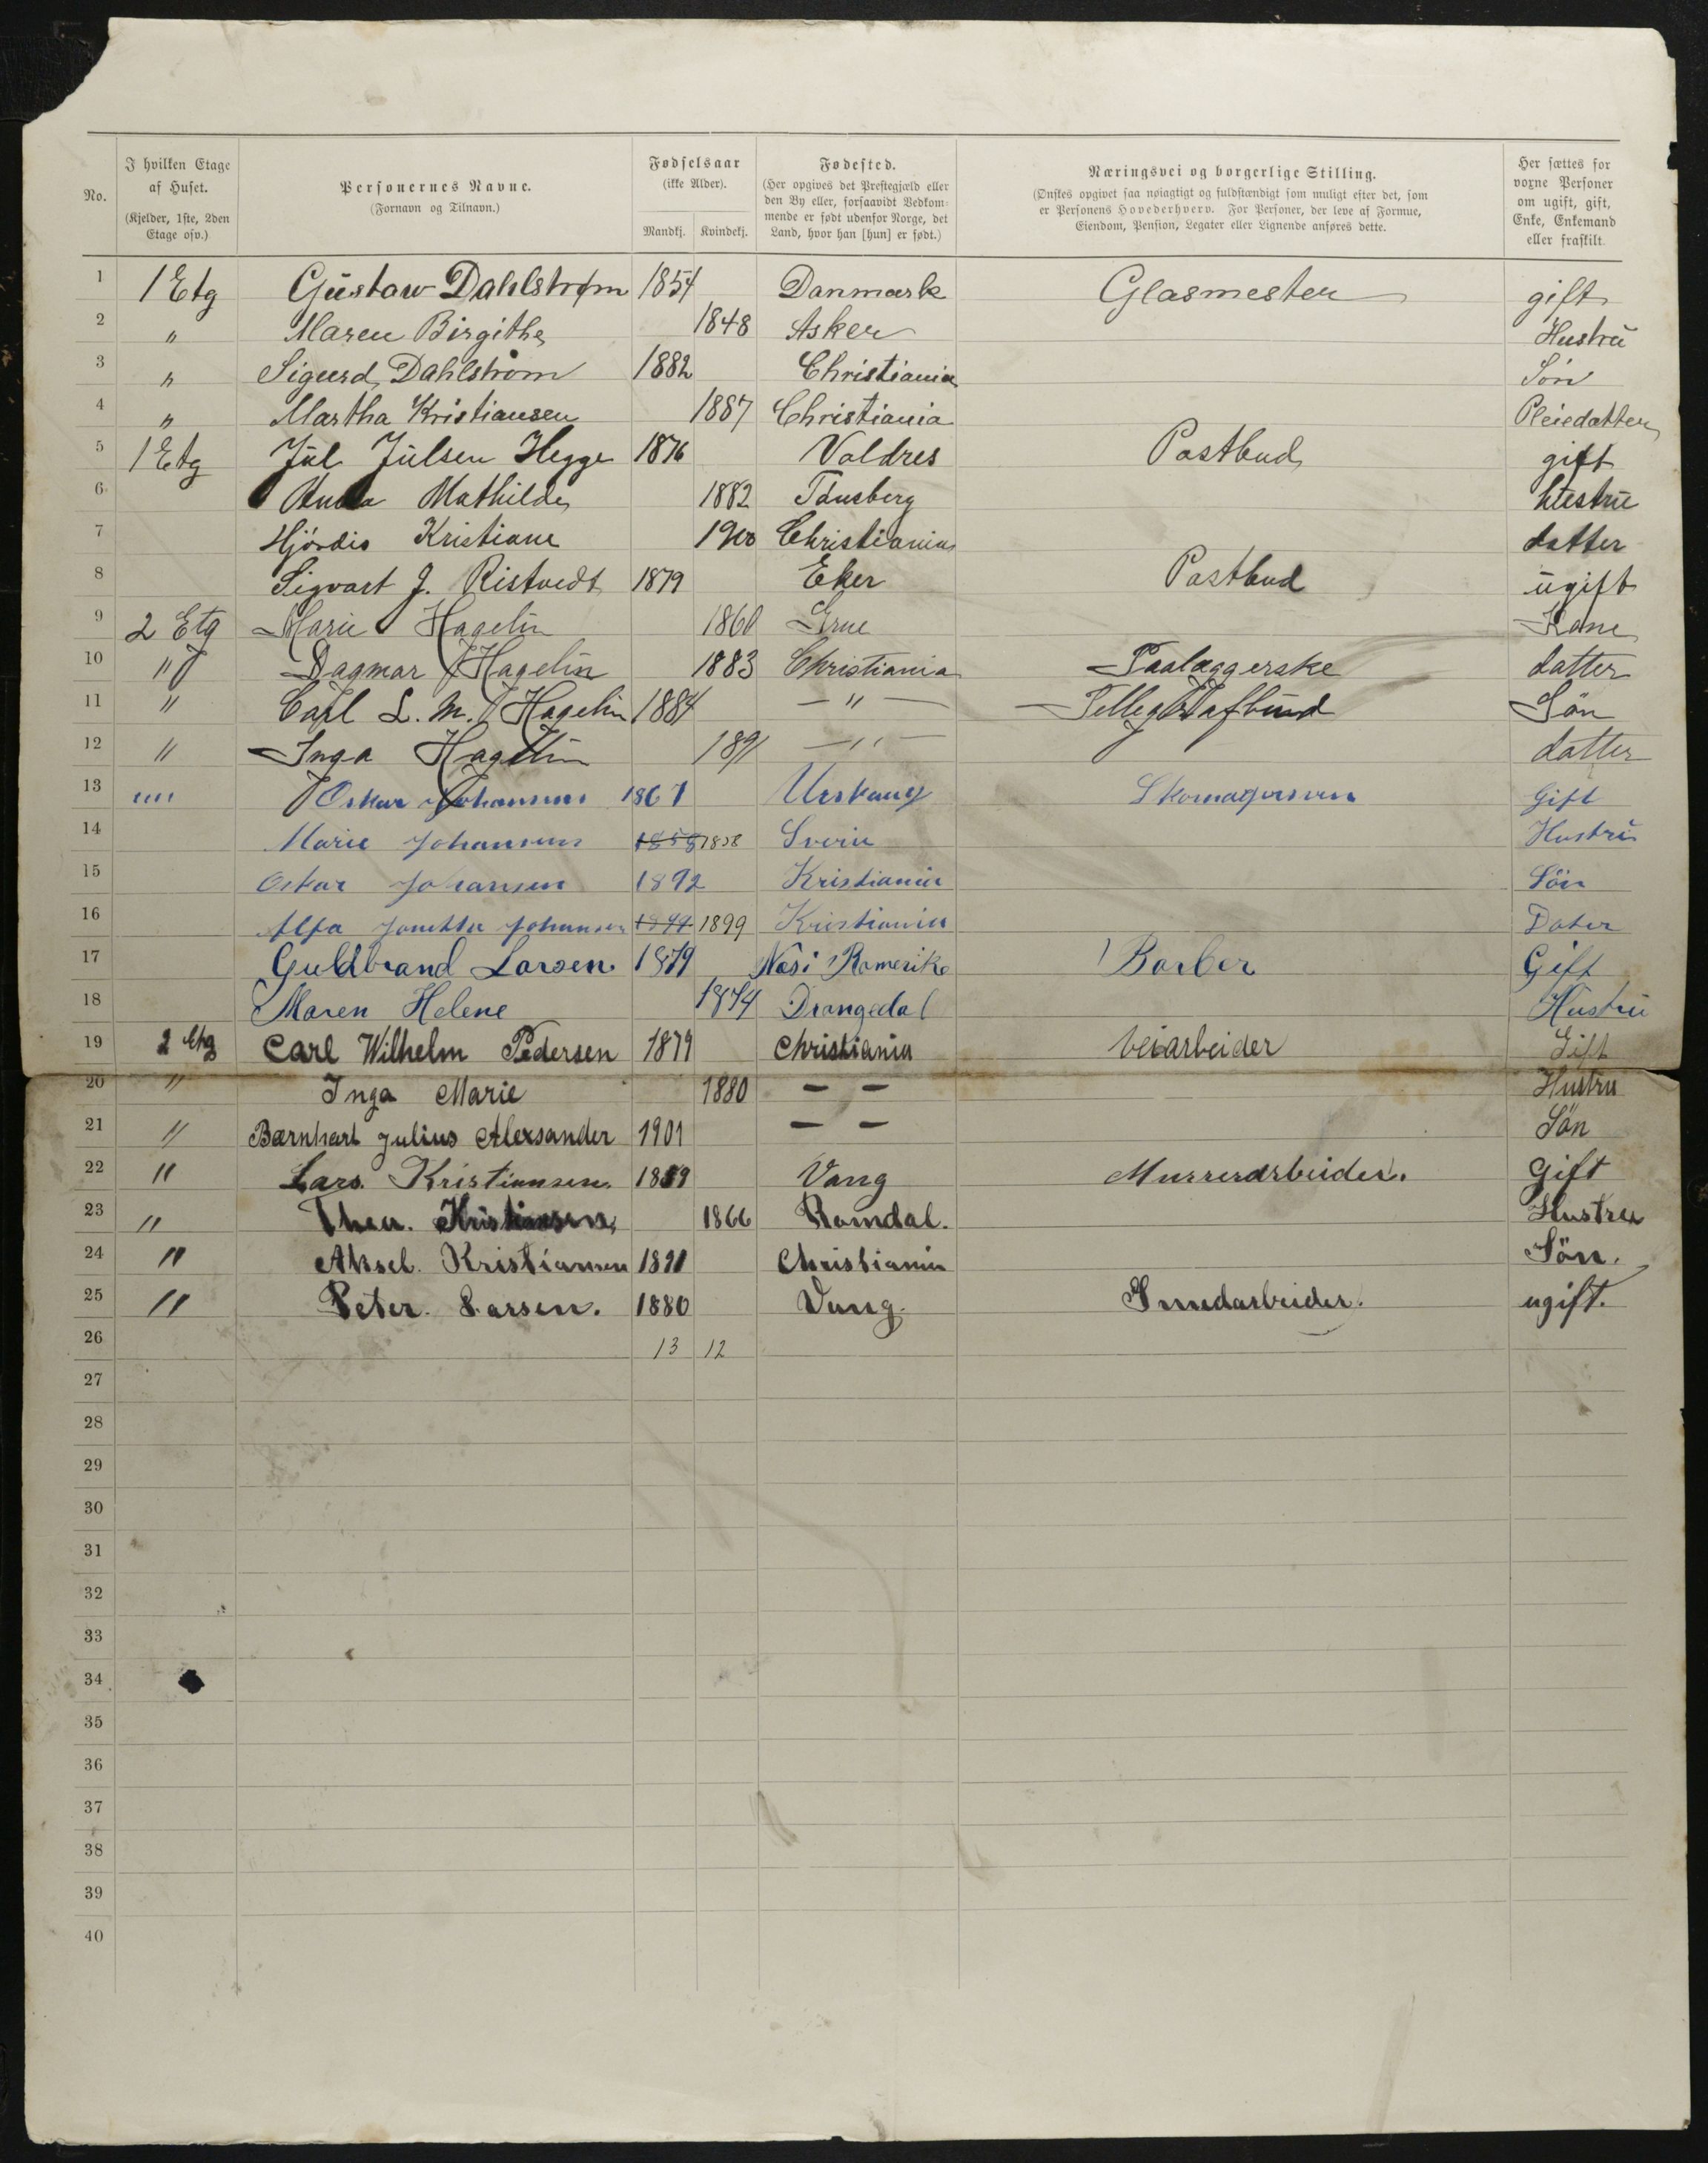 No.
I hvilken Etage af Huset.
(Kjelder, 1ste, 2den Etage osv.)
Personernes Navne.
(Fornavn og Tilnavn.)
Fødselsaar
(ikke Alder).
Mandkj. Kvindekj.
Fødested.
(Her opgives det Prestegjæld eller den By eller, forsaavidt Vedkommende er født udenfor Norge, det Land, hvor han [hun] er født.)
Næringsvei og borgerlige Stilling.
(Ønskes opgivet saa nøiagtigt og fuldstændigt som muligt efter det, som er Personens Hovederhverv. For Personer, der leve af Formue, Eiendom, Pension, Legater eller Lignende anføres dette.
Her sættes for voxne Personer om ugift, gift, Enke, Enkemand eller fraskilt.
1 1 Etg Gustaw Dahlstrøm 1854 Danmark Glasmester gift
2 " Maren Birgithe 1848 Asker Hustrü
3 " Sigurd Dahlström 1882 Christiania Sön
4 " Martha Kristiansen 1887 Christiania Pleiedatter
5 1 Etg Jül Jülsen Hegge 1876 Valdres Postbud gift
6 Anna Mathilde 1882 Tönsberg hüstrü
7 Hjördis Kristiane 1900 Christiania datter
8 Sigvart J. Ristvedt 1879 Eker Postbud ügift
9 2 Etg Marie Hagelin 1860 Grue Kone
10 " Dagmar Hagelin 1883 Christiania Paalæggerske datter
11 " Carl L. M. Hagelin 1884 — " — Tellegrafbüd Sön
12 " Inga Hagelin 1891 — " — datter
13 "" Oskar Johansen 1861 Urskaug Skomagersven Gift
14 Marie Johansen 1858 1858 Sverie Hustrü
15 Oskar Johansen 1892 Kristiania Sön
16 Johansen 1899 1899 Kristiania Dater
17 Guldbrand Larsen 1879 Næs i Romerike Barber Gift
18 Maren Helene 1874 Drangedal Hüstrü
19 2 Etg Carl Wilhelm Pedersen 1879 Christiania veiarbeider Gift
20 " Inga Marie 1880 — — Hustru
21 " Bærnhart Julius Alexsander 1901 — — Sön
22 " Lars. Kristiansen. 1859 Vang Murrerarbeider. Gift
23 " Thea. Kristiansen 1866 Romdal. Hustru
24 " Aksel. Kristiansen 1891 Christiania Sön.
25 " Peter. Larsen. 1880 Vang. ugift.
26 13 12
27
28
29
30
31
32
33
34
35
36
37
38
39
40